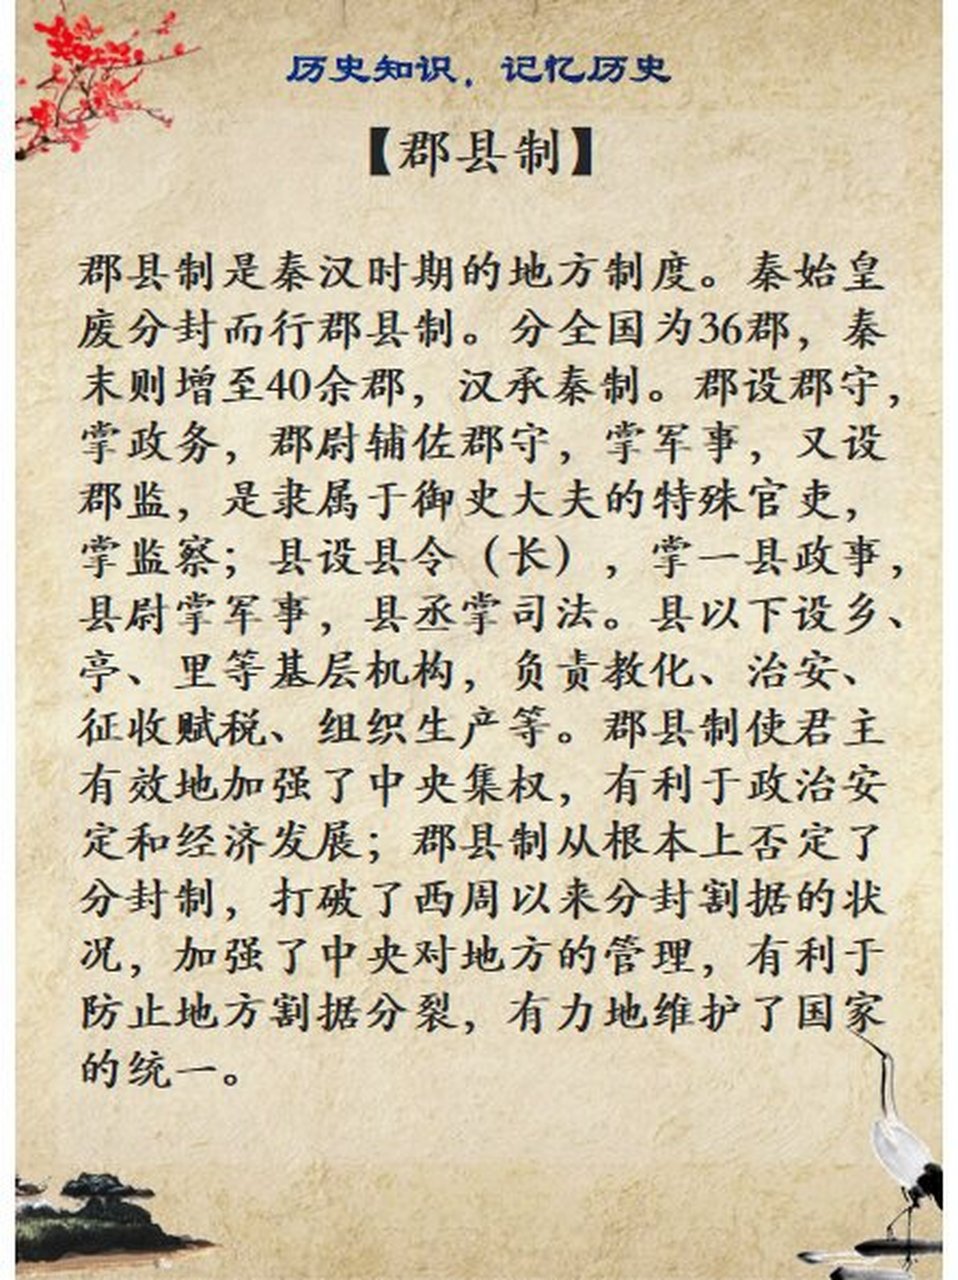 历史知识，记忆历史
【郡县制】
郡县制是秦汉时期的地方制度。秦始皇
废分封而行郡县制。分全国为36郡，秦
末则增至40余郡，汉承秦制。郡设郡守，
掌政务，郡尉辅佐郡守，掌军事，又设
郡监，是隶属于御史大夫的特殊官吏，
掌监察；县设县令（长），掌一县政事，
县尉掌军事，县丞掌司法。县以下设乡、
亭、里等基层机构，负责教化、治安、
征收赋税、组织生产等。郡县制使君主
有效地加强了中央集权，有利于政治安
定和经济发展；郡县制从根本上否定了
分封制，打破了西周以来分封割据的状
况，加强了中央对地方的管理，有利于
防止地方割据分裂，有力地维护了国家
的统一。